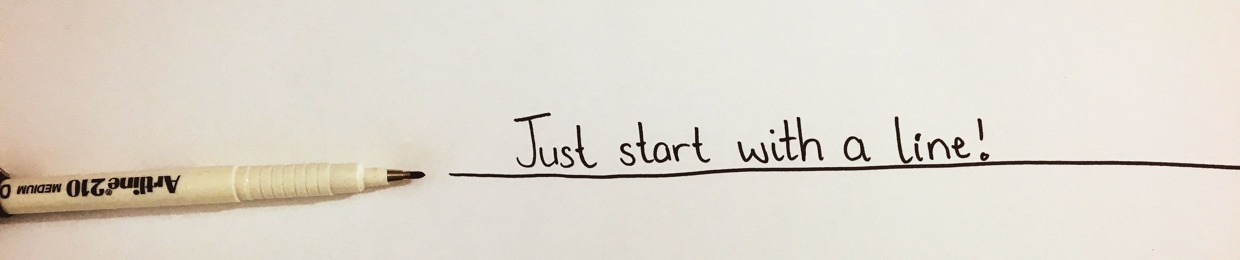 Just start with a line!
Artline 210 MEDIUM